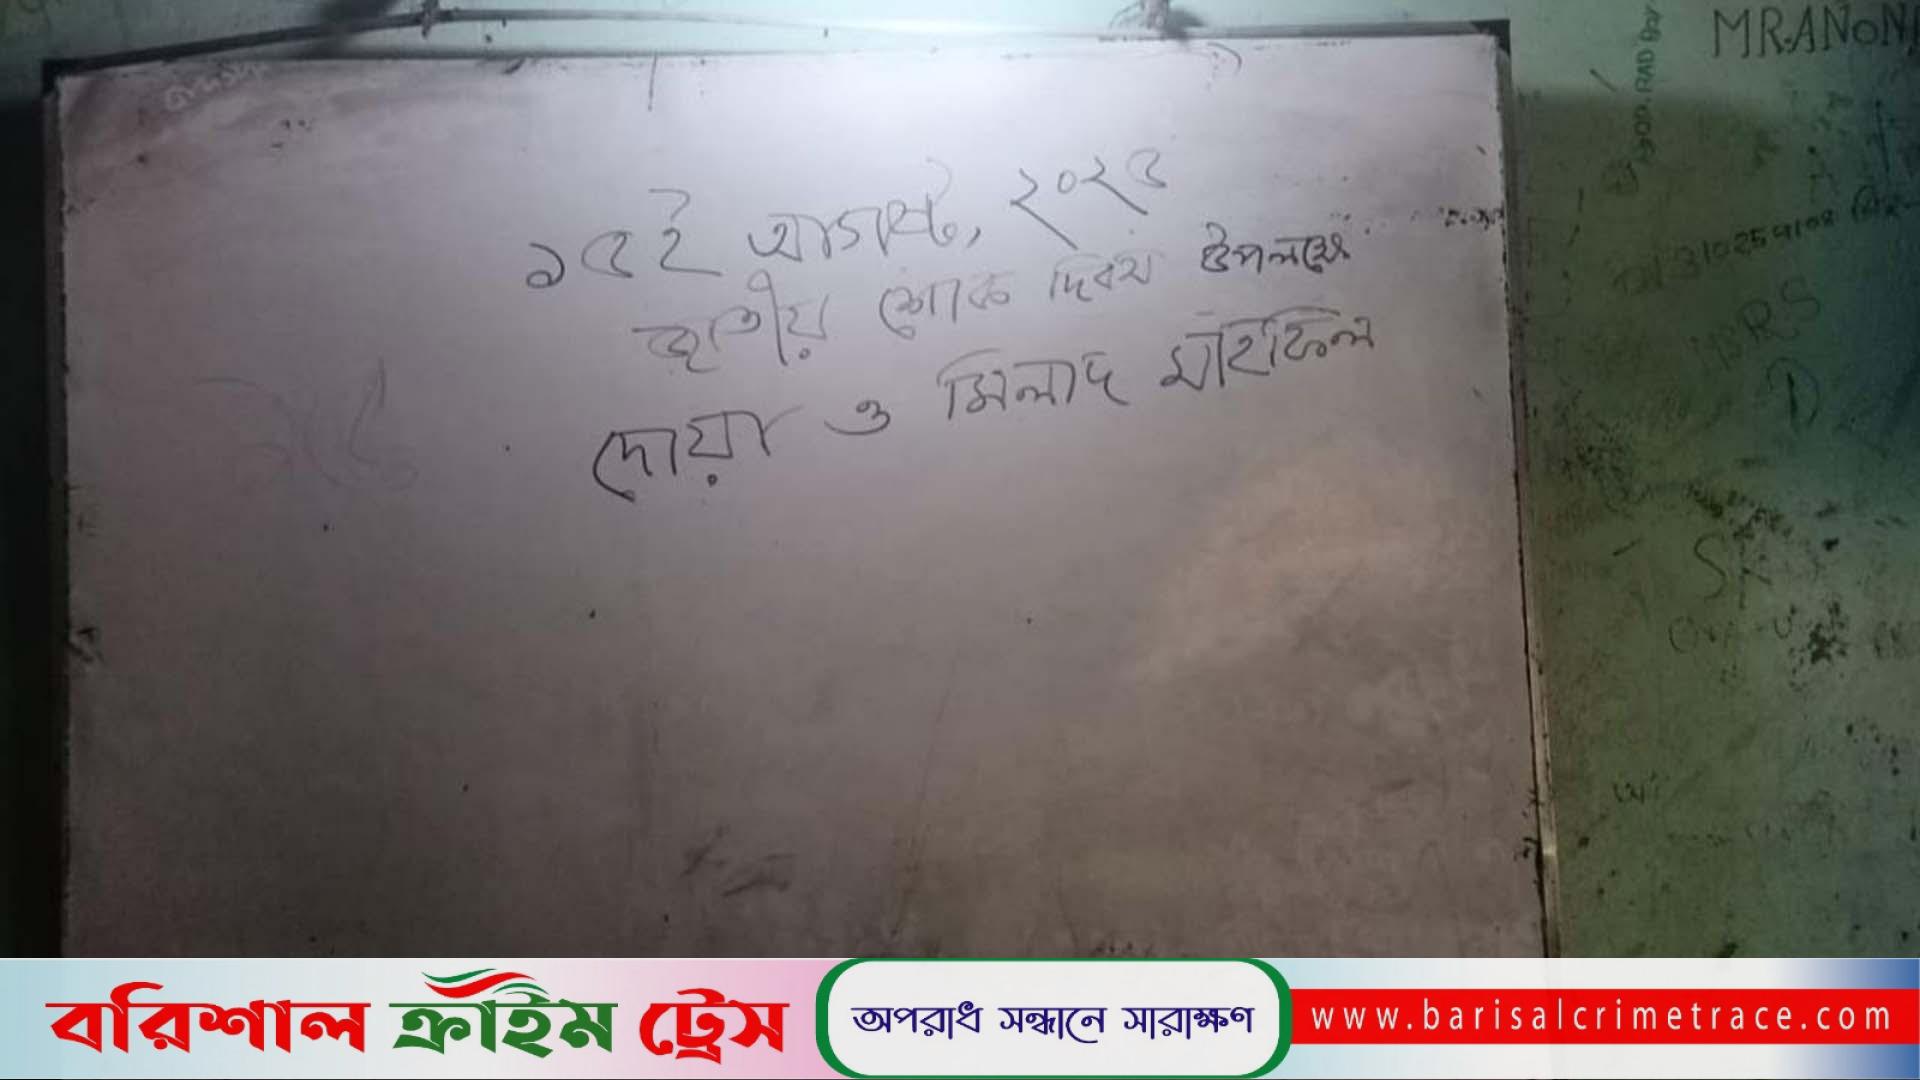 MRANON
১৫ই আগষ্ট, ২০২৫
জাতীয় শোক দিবস উপলক্ষে
দোয়া ও মিলাদ মাহফিল
বরিশাল ক্রাইম ট্রেস
অপরাধ সন্ধানে সারাক্ষণ
www.barisalcrimetrace.com